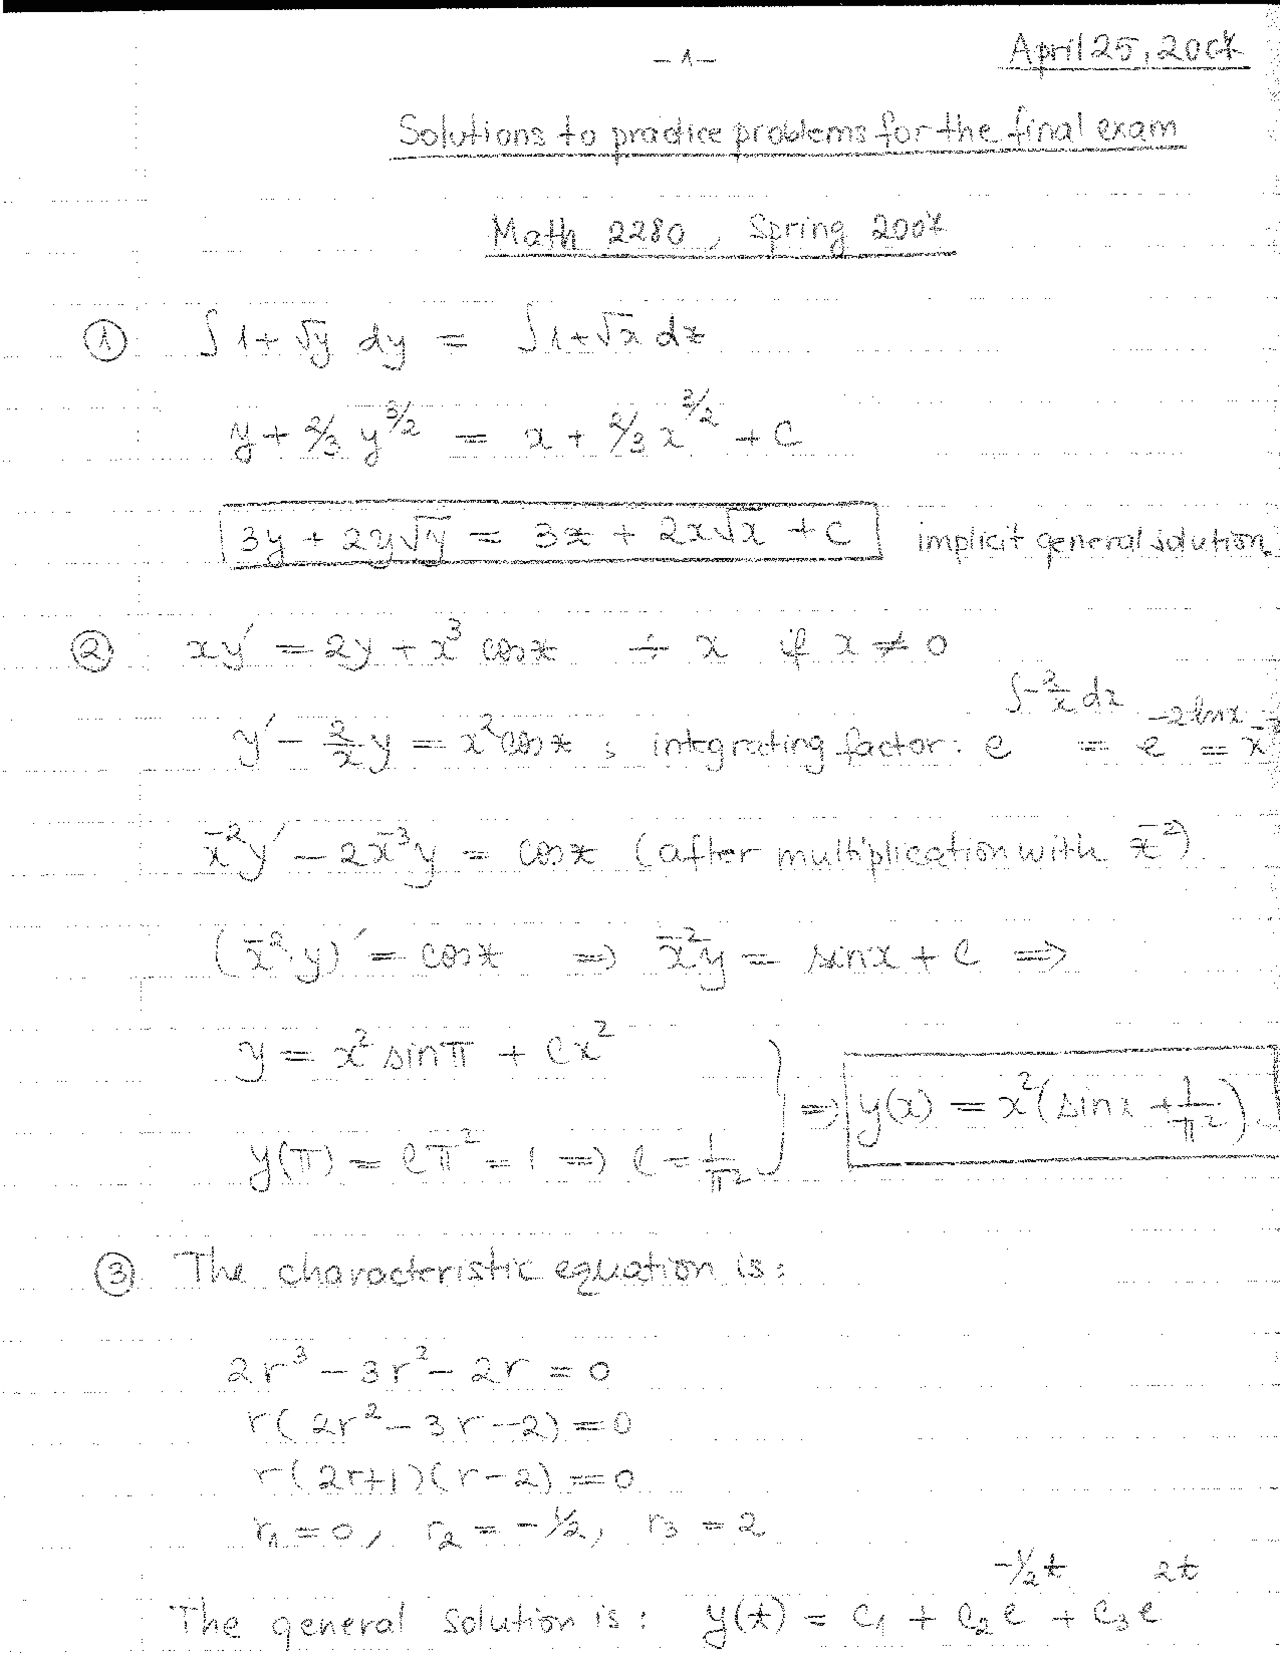 -1-
April 25, 2007
Solutions to practice problems for the final exam
Math 2280, Spring 2007
① ∫ 1 + √y dy = ∫ 1 + √x dx
y + 2/3 y^3/2 = x + 2/3 x^3/2 + C
3y + 2y√y = 3x + 2x√x + C implicit general solution
② xy' = 2y + x³ cos x ÷ x if x ≠ 0
y' - 2/x y = x² cos x ; integrating factor: e^∫-2/x dx = e^-2 ln x = x^-2
x^-2 y' - 2x^-3 y = cos x (after multiplication with x^-2)
(x^-2 y)' = cos x ⇒ x^-2 y = sin x + C ⇒
y = x² sin π + Cx²
y(π) = Cπ² = 1 ⇒ C = 1/π² } ⇒ y(x) = x²(sin x + 1/π²)
③ The characteristic equation is:
2r³ - 3r² - 2r = 0
r(2r² - 3r - 2) = 0
r(2r+1)(r-2) = 0
r₁ = 0, r₂ = -1/2, r₃ = 2
The general solution is: y(t) = C₁ + C₂e^-1/2t + C₃e^2t